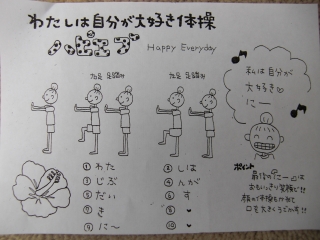 わたしは自分が大好き体操
ハッピエブ
Happy Everyday
左足 足踏み
右足 足踏み
私は自分が
大好き♡
にー
① わた
② しは
③ じぶ
④ んが
⑤ だい
⑥ す
⑦ き
⑨ に〜
⑩ 〃
ポイント
最後の「にー」は
おもいっきり笑顔で!!
顔の体操もかねて
口を大きくうごかす!!